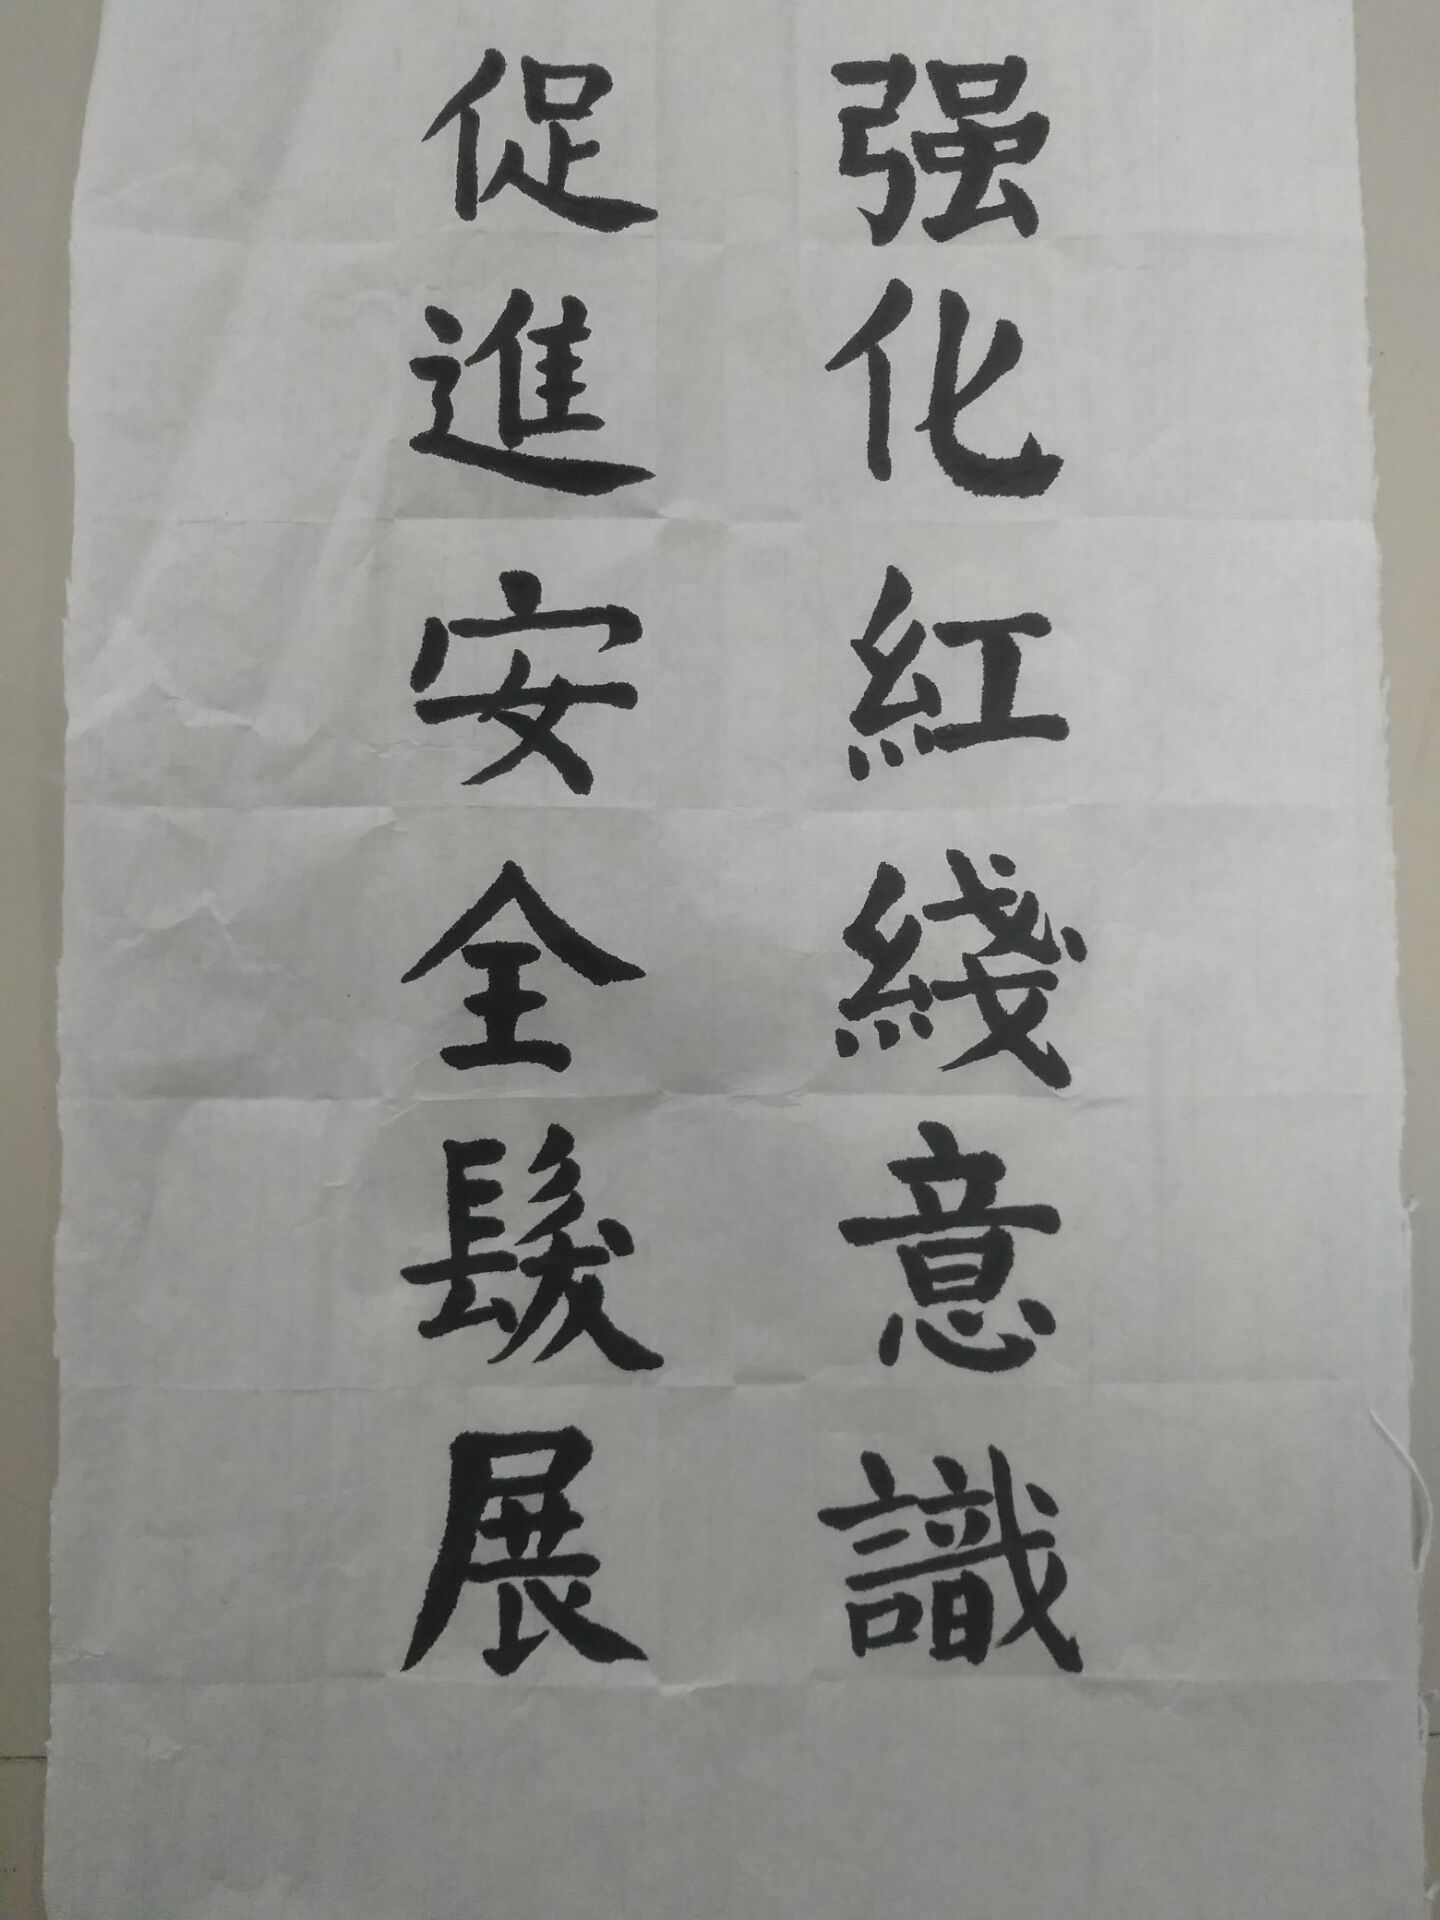 强化紅綫意識
促進安全髮展